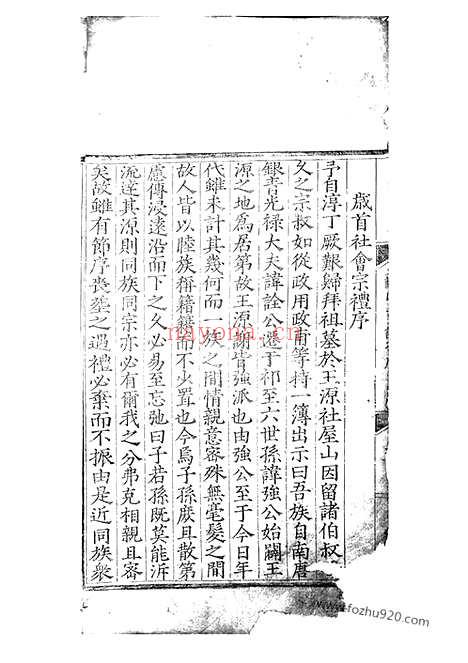 歲首社會宗禮序
予自淳丁厥艱歸拜祖墓於王源社屋山因留諸伯叔
久之宗叔如從政用政甫等持一簿出示曰吾族自南唐
銀青光祿大夫諱詮公遷于祁至六世孫諱強公始闢王
源之地爲居第故王源謝皆強派也由強公至于今日年
代雖未計其幾何而一族之間情親意審殊無毫髮之間
故人皆以睦族稱籍籍而不少置也今焉子孫庶且散第
慮傳浸遠沿而下之久必易至忘弛曰子若孫既莫能泝
流逹其源則同族同宗亦必有爾我之分弗克相親且審
矣故雖有節序喪墓之遇禮必棄而不振由是近同族衆
nayona.cn
www.fozhu920.com